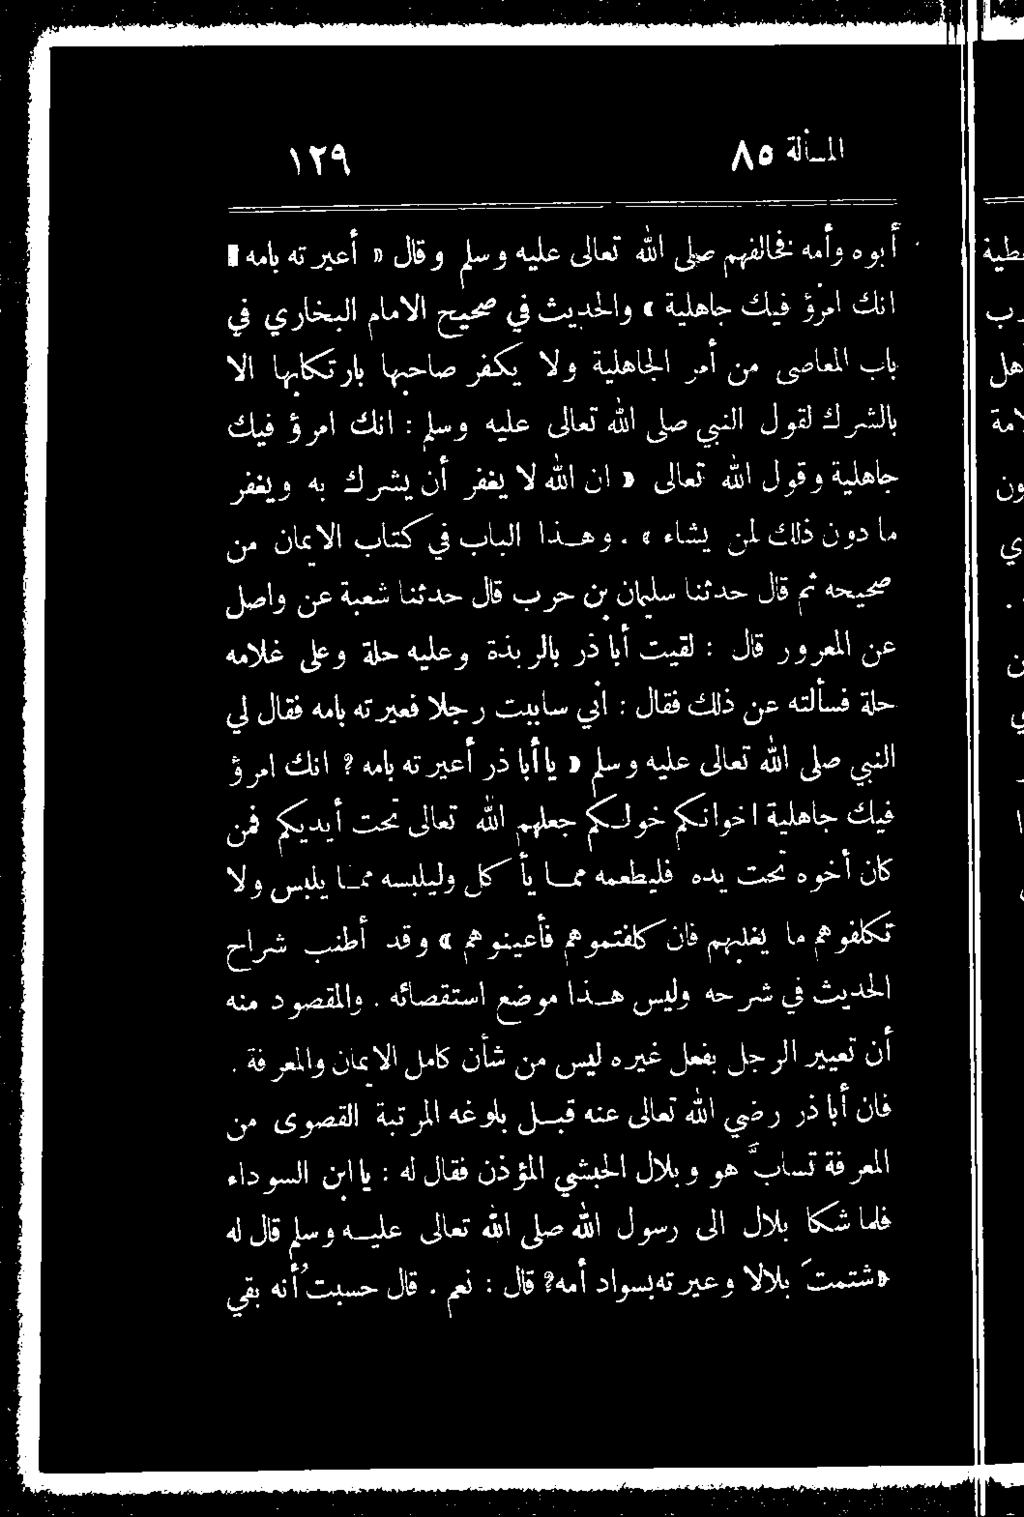 المسألة ٨٥ ١٢٩
أبوه وأمه فخالفهم صلى الله تعالى عليه وسلم وقال « أعيرته بامه
انك امرُؤ فيك جاهلية » والحديث في صحيح الامام البخاري في
باب المعاصى من أمر الجاهلية ولا يكفر صاحبها بارتكابها الا
بالشرك لقول النبي صلى الله تعالى عليه وسلم : انك امرؤ فيك
جاهلية وقول الله تعالى « ان الله لا يغفر أن يشرك به ويغفر
ما دون ذلك لمن يشاء » . وهـذا الباب في كتاب الايمان من
صحيحه ثم قال حدثنا سليمان بن حرب قال حدثنا شعبة عن واصل
عن المعرور قال : لقيت أبا ذر بالربذة وعليه حلة وعلى غلامه
حلة فسألته عن ذلك فقال : اني ساببت رجلا فعيرته بامه فقال لي
النبي صلى الله تعالى عليه وسلم « يا أبا ذر أعيرته بامه ؟ انك امرؤ
فيك جاهلية اخوانكم خولـكم جعلهم الله تعالى تحت أيديكم فمن
كان أخوه تحت يده فليطعمه ممـا يأ كل وليلبسه ممـا يلبس ولا
تكلفوهم ما يغلبهم فان كلفتموهم فأعينوهم » وقد أطنب شراح
الحديث في شرحه وليس هـذا موضع استقصائه . والمقصود منه
أن تعيير الرجل بفعل غيره ليس من شأن كامل الايمان والمعرفة .
فان أبا ذر رضي الله تعالى عنه قبـل بلوغه المرتبة القصوى من
المعرفة تسابَّ هو وبلال الحبشي المؤذن فقال له : يا ابن السوداء
فلما شكا بلال الى رسول الله صلى الله تعالى عليـه وسلم قال له
«شتمتَ بلالا وعيرته بسواد أمه؟ قال : نعم . قال حسبتُ أنه بقي